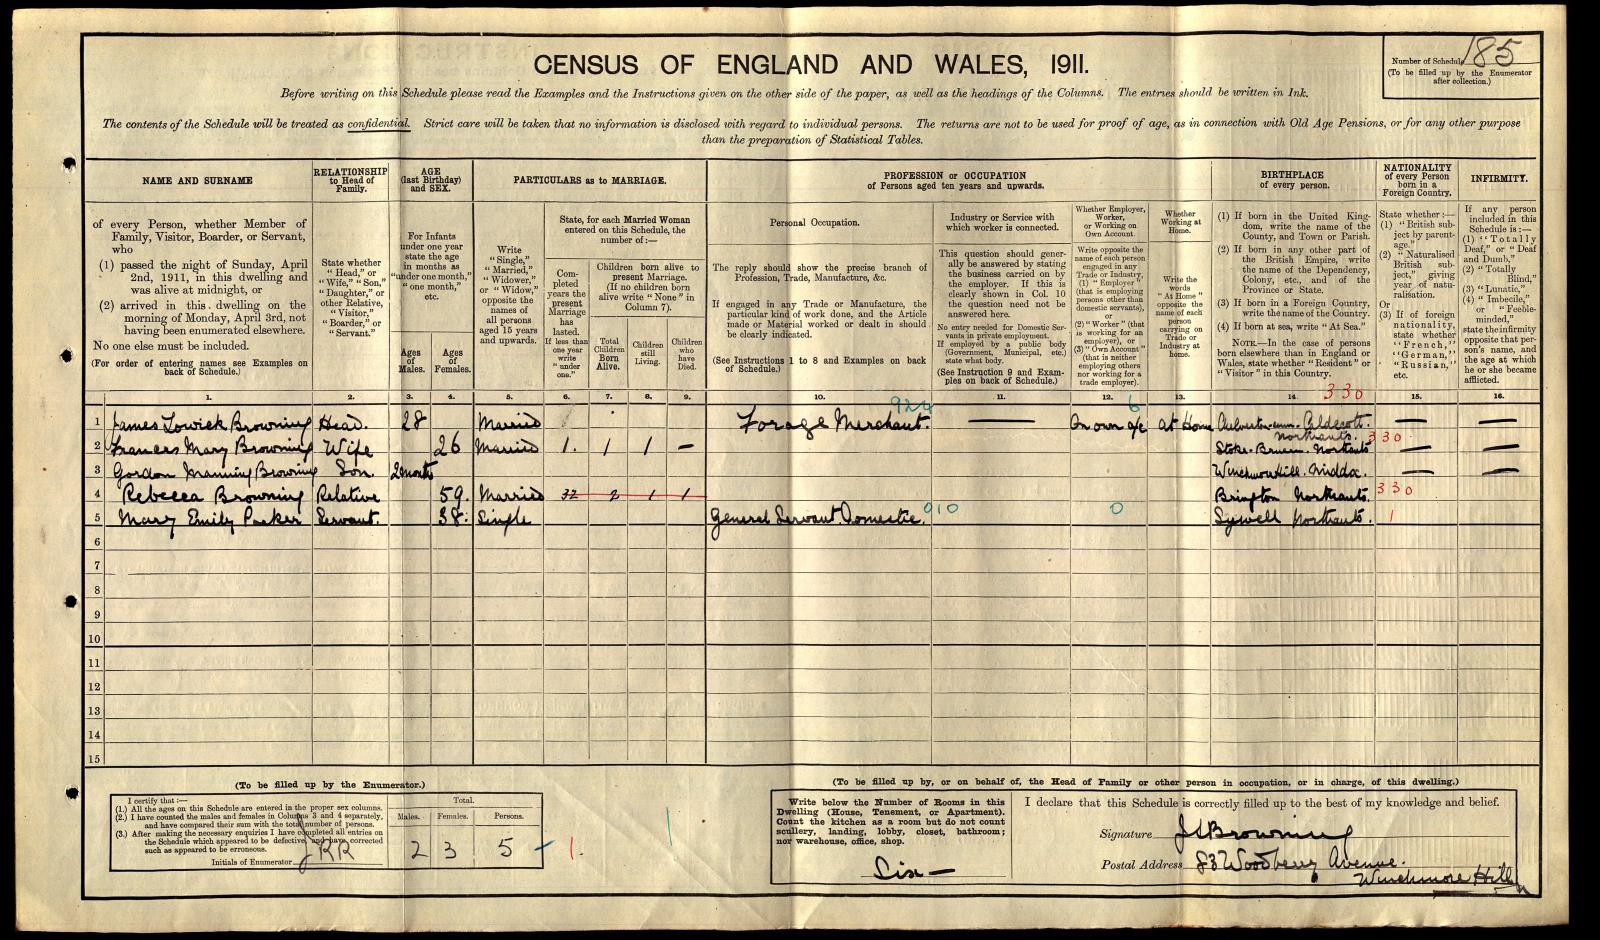 CENSUS OF ENGLAND AND WALES, 1911.
Number of Schedule 185
(To be filled up by the Enumerator
after collection.)
Before writing on this Schedule please read the Examples and the Instructions given on the other side of the paper, as well as the headings of the Columns. The entries should be written in Ink.
The contents of the Schedule will be treated as confidential. Strict care will be taken that no information is disclosed with regard to individual persons. The returns are not to be used for proof of age, as in connection with Old Age Pensions, or for any other purpose
than the preparation of Statistical Tables.
NAME AND SURNAME
of every Person, whether Member of
Family, Visitor, Boarder, or Servant,
who
(1) passed the night of Sunday, April
2nd, 1911, in this dwelling and
was alive at midnight, or
(2) arrived in this dwelling on the
morning of Monday, April 3rd, not
having been enumerated elsewhere.
No one else must be included.
(For order of entering names see Examples on
back of Schedule.)
RELATIONSHIP
to Head of
Family.
State whether
"Head," or
"Wife," "Son,"
"Daughter," or
other Relative,
"Visitor,"
"Boarder," or
"Servant."
AGE
(last Birthday)
and SEX.
For Infants
under one year
state the age
in months as
"under one month,"
"one month,"
etc.
Ages
of
Males.
Ages
of
Females.
PARTICULARS as to MARRIAGE.
Write
"Single,"
"Married,"
"Widower,"
or "Widow,"
opposite the
names of
all persons
aged 15 years
and upwards.
State, for each Married Woman
entered on this Schedule, the
number of:—
Com-
pleted
years the
present
Marriage
has
lasted.
If less than
one year
write
"under
one."
Children born alive to
present Marriage.
(If no children born
alive write "None" in
Column 7).
Total
Children
Born
Alive.
Children
still
Living.
Children
who
have
Died.
PROFESSION or OCCUPATION
of Persons aged ten years and upwards.
Personal Occupation.
The reply should show the precise branch of
Profession, Trade, Manufacture, &c.
If engaged in any Trade or Manufacture, the
particular kind of work done, and the Article
made or Material worked or dealt in should
be clearly indicated.
(See Instructions 1 to 8 and Examples on back
of Schedule.)
Industry or Service with
which worker is connected.
This question should gener-
ally be answered by stating
the business carried on by
the employer. If this is
clearly shown in Col. 10
the question need not be
answered here.
No entry needed for Domestic Ser-
vants in private employment.
If employed by a public body
(Government, Municipal, etc.)
state what body.
(See Instruction 9 and Exam-
ples on back of Schedule.)
Whether Employer,
Worker,
or Working on
Own Account.
Write opposite the
name of each person
engaged in any
Trade or Industry,
(1) "Employer"
(that is employing
persons other than
domestic servants),
or
(2) "Worker" (that
is working for an
employer), or
(3) "Own Account"
(that is neither
employing others
nor working for a
trade employer).
Whether
Working at
Home.
Write the
words
"At Home"
opposite the
name of each
person
carrying on
Trade or
Industry at
home.
BIRTHPLACE
of every person.
(1) If born in the United King-
dom, write the name of the
County, and Town or Parish.
(2) If born in any other part of
the British Empire, write
the name of the Dependency,
Colony, etc., and of the
Province or State.
(3) If born in a Foreign Country,
write the name of the Country.
(4) If born at sea, write "At Sea."
NOTE.—In the case of persons
born elsewhere than in England or
Wales, state whether "Resident" or
"Visitor" in this Country.
NATIONALITY
of every Person
born in a
Foreign Country.
State whether:—
(1) "British sub-
ject by parent-
age."
(2) "Naturalised
British sub-
ject," giving
year of natu-
ralisation.
Or
(3) If of foreign
nationality,
state whether
"French,"
"German,"
"Russian,"
etc.
INFIRMITY.
If any person
included in this
Schedule is:—
(1) "Totally
Deaf," or "Deaf
and Dumb,"
(2) "Totally
Blind,"
(3) "Lunatic,"
(4) "Imbecile,"
or "Feeble-
minded,"
state the infirmity
opposite that per-
son's name, and
the age at which
he or she became
afflicted.
1. 2. 3. 4. 5. 6. 7. 8. 9. 10. 11. 12. 13. 14. 15. 16.
330
924 6
1 James Lowick Browning Head. 28 Married Forage Merchant. — On own a/c At Home Culverton-cum-Caldecott. — —
Northants. 330
2 Frances Mary Browning Wife 26 Married 1. 1 1 — Stoke-Bruern Northants — —
3 Gordon Manning Browning Son 2 months Winchmore Hill. Midda. — —
4 Rebecca Browning Relative 59. Married 32 2 1 1 Brington Northants. 330
5 Mary Emily Parker Servant. 38. Single General Servant Domestic. 010 0 Sywell Northants. 1
6
7
8
9
10
11
12
13
14
15
(To be filled up by the Enumerator.)
I certify that:—
(1.) All the ages on this Schedule are entered in the proper sex columns.
(2.) I have counted the males and females in Columns 3 and 4 separately,
and have compared their sum with the total number of persons.
(3.) After making the necessary enquiries I have completed all entries on
the Schedule which appeared to be defective, and have corrected
such as appeared to be erroneous.
Initials of Enumerator JRR
Total.
Males. Females. Persons.
2 3 5 - 1.
(To be filled up by, or on behalf of, the Head of Family or other person in occupation, or in charge, of this dwelling.)
Write below the Number of Rooms in this
Dwelling (House, Tenement, or Apartment).
Count the kitchen as a room but do not count
scullery, landing, lobby, closet, bathroom;
nor warehouse, office, shop.
Six —
I declare that this Schedule is correctly filled up to the best of my knowledge and belief.
Signature JLBrowning
Postal Address 83 Woodberry Avenue.
Winchmore Hill